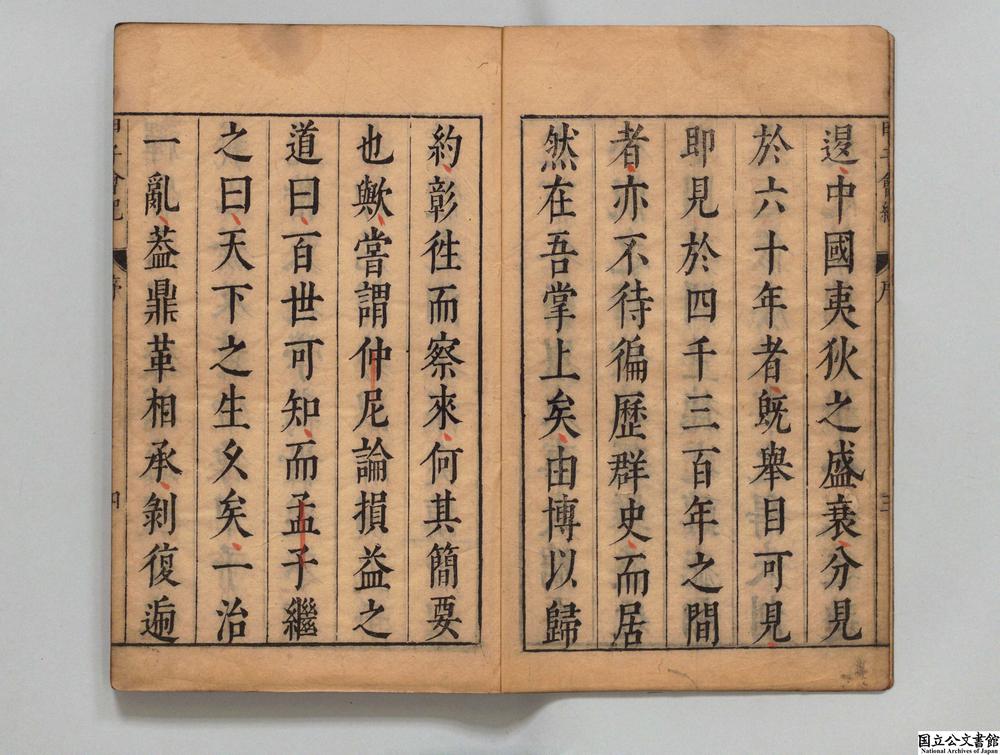 邊中國夷狄之盛衰分見
於六十年者旣舉目可見
即見於四千三百年之間
者亦不待徧歷群史而居
然在吾掌上矣由博以歸
約彰徃而察來何其簡要
也歟嘗謂仲尼論損益之
道曰百世可知而孟子繼
之曰天下之生久矣一治
一亂葢鼎革相承剝復遞
序
国立公文書館
National Archives of Japan